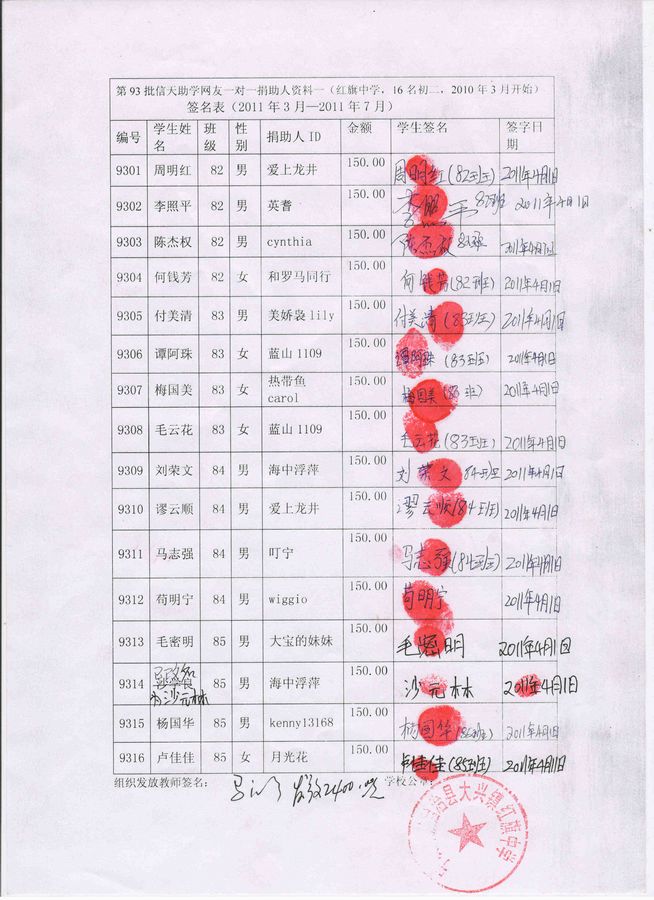 第93批信天助学网友一对一捐助人资料一（红旗中学，16名初二，2010年3月开始）
签名表（2011年3月—2011年7月）
编号 学生姓名 班级 性别 捐助人ID 金额 学生签名 签字日期
9301 周明红 82 男 爱上龙井 150.00 周明红(82班) 2011年4月1日
9302 李照平 82 男 英耆 150.00 李照平 82班 2011年4月1日
9303 陈杰权 82 男 cynthia 150.00 陈杰权 82班 2011年4月1日
9304 何钱芳 82 女 和罗马同行 150.00 何钱芳(82班) 2011年4月1日
9305 付美清 83 男 美娇袅lily 150.00 付美清(83班) 2011年4月1日
9306 谭阿珠 83 女 蓝山1109 150.00 谭阿珠(83班) 2011年4月1日
9307 梅国美 83 女 热带鱼carol 150.00 梅国美(83班) 2011年4月1日
9308 毛云花 83 女 蓝山1109 150.00 毛云花(83班) 2011年4月1日
9309 刘荣文 84 男 海中浮萍 150.00 刘荣文 84班 2011年4月1日
9310 谬云顺 84 男 爱上龙井 150.00 谬云顺(84班) 2011年4月1日
9311 马志强 84 男 叮宁 150.00 马志强(84班) 2011年4月1日
9312 苟明宁 84 男 wiggio 150.00 苟明宁 2011年4月1日
9313 毛密明 85 男 大宝的妹妹 150.00 毛密明 2011年4月1日
9314 为沙元林 85 男 海中浮萍 150.00 沙元林 2011年4月1日
9315 杨国华 85 男 kenny13168 150.00 杨国华(85班) 2011年4月1日
9316 卢佳佳 85 女 月光花 150.00 卢佳佳(85班) 2011年4月1日
组织发放教师签名： 发放2400.元 学校公章：
治县大兴镇红旗中学